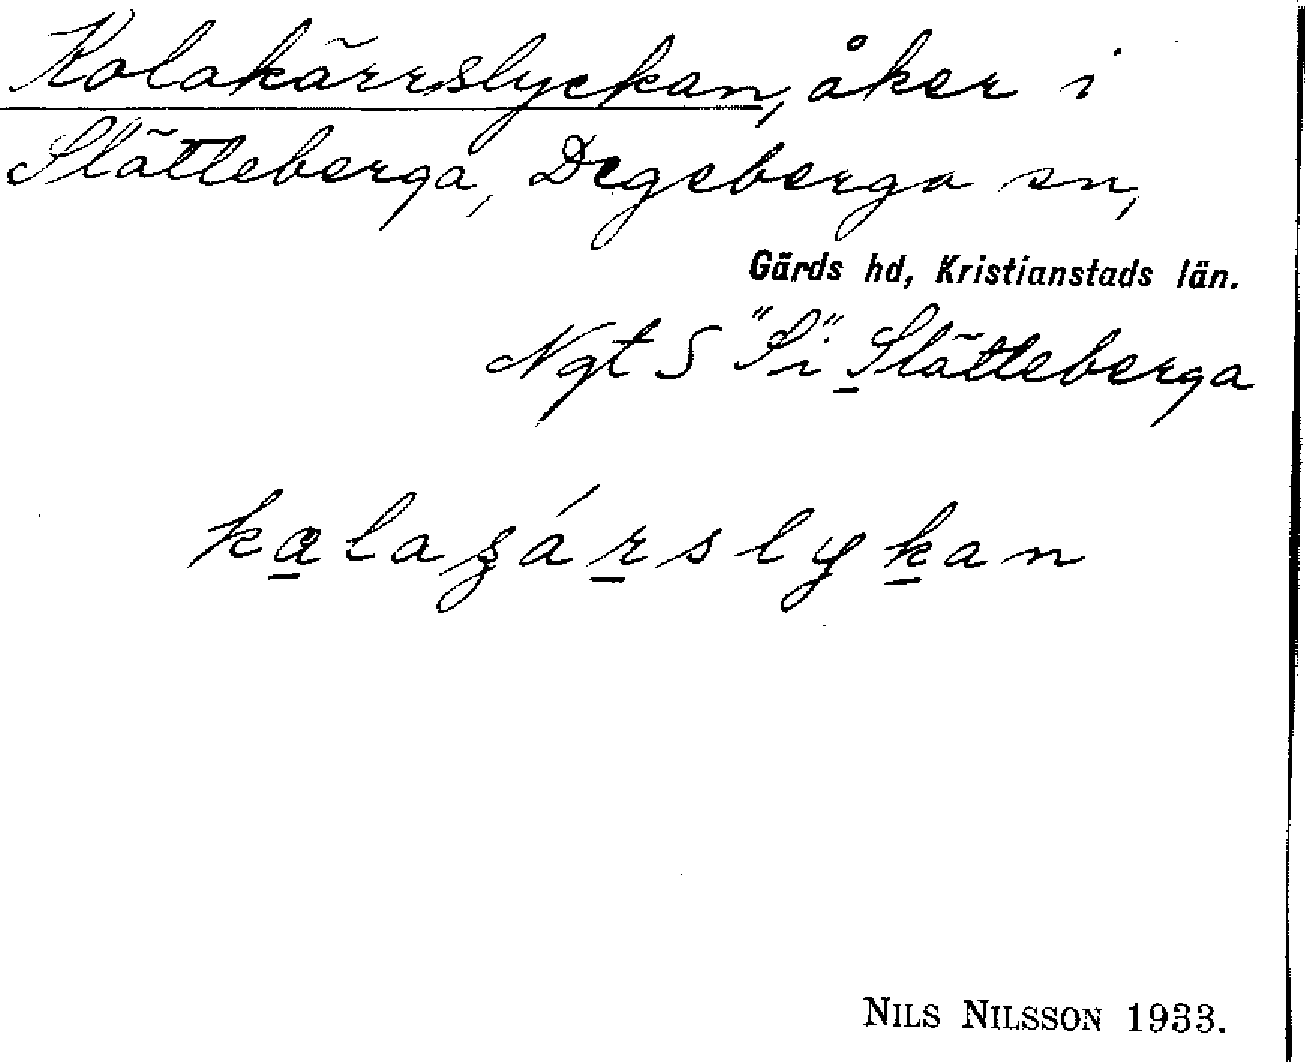 Kolakärrslyckan, åker i
Slätteberga, Degeberga sn,
Gärds hd, Kristianstads län.
Ngt S "Si" Slätteberga
kalaʒárslykan
NILS NILSSON 1933.